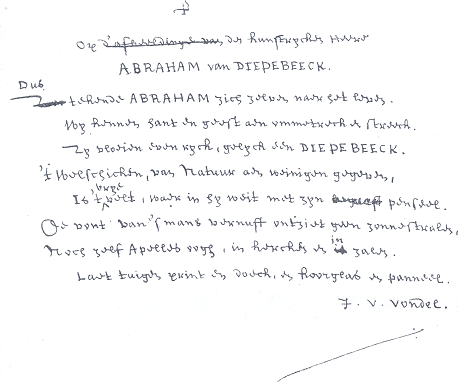 Op d'afbeeldinge van den kunstrycken Heere
ABRAHAM van DIEPEBEECK.
Dus
tekende ABRAHAM zich zelven naer het leven.
Wy kennen hant en geest aen ommetreck en streeck.
Zy vloeien even ryck, gelyck een DIEPEBEECK.
't Welschicken, van Natuur aen weinigen gegeven,
Is 't vrye velt, waer in zy weit met zyn penseel.
De vont van 's mans vernuft ontziet geen zonnestraelen,
Noch zelf Apelles oogh, in kercken en in zaelen.
Laet tuigen print en doeck, en koorglas en panneel.
J. v. Vondel.